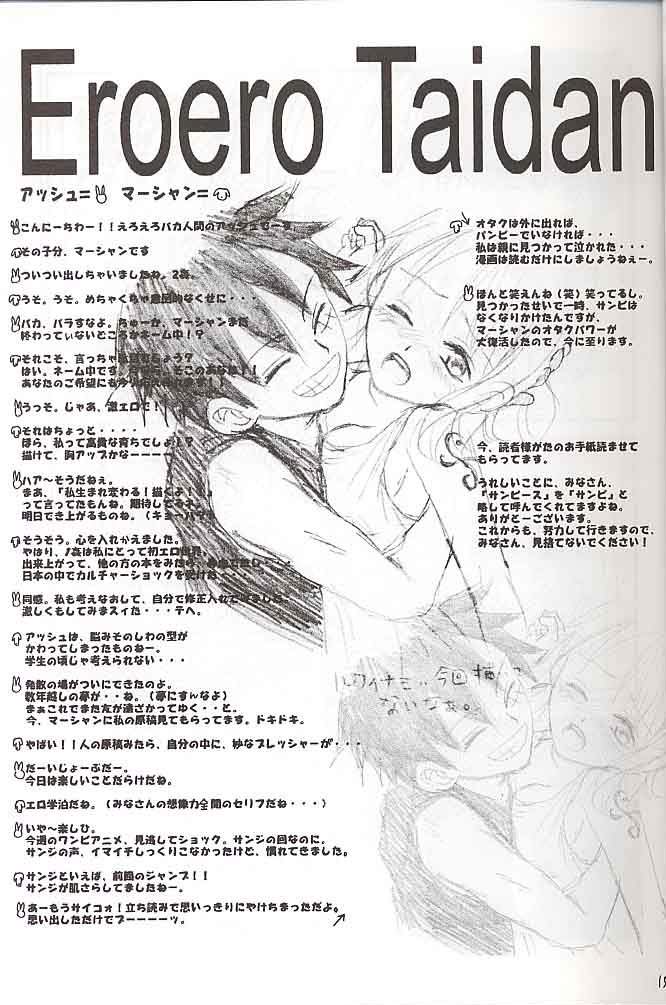 Eroero Taidan
アッシュ= マーシャン=
こんにーちわー!!えろえろバカ人間のアッシュでーす。
その子分、マーシャンです
ついつい出しちゃいましたね。2姦。
うそ。うそ。めちゃくちゃ意図的なくせに・・・
バカ、バラすなよ。ちゅーか、マーシャンまだ
終わってぃないどころかネーム中!?
それこそ、言っちゃ
はい。ネーム中です。 そこのあなた!!
あなたのご希望にも今
うっそ。じゃあ、激エロで!
それはちょっと・・・・
ほら、私って高貴な育ちでしょ!?
描けて、胸アップかなーーーー
ハア〜そうだねぇ。
まあ、「私生まれ変わる!描くよ!!」
って言ってたもんね。期待してるネ。
明日でき上がるものね。(キョーハク)
そうそう。心を入れかえました。
やはり、1姦は私にとって初エロ世界。
出来上がって、他の方の本をみたら、
日本の中でカルチャーショックを受けた・・・
同感。私も考えなおして、自分で修正入れて
激しくもしてみまスィた・・・テヘ。
アッシュは、脳みそのしわの型が
かわってしまったものねー。
学生の頃じゃ考えられない・・・
発散の場がついにできたのよ。
数年越しの夢が・・ね。(夢にすんなよ)
まぁこれでまた友が遠ざかってゆく・・と。
今、マーシャンに私の原稿見てもらってます。ドキドキ。
やばい!!人の原稿みたら、自分の中に、妙なプレッシャーが・・・
だーいじょーぶだー。
今日は楽しいことだらけだね。
エロ学泊だね。(みなさんの想像力全開のセリフだね・・・)
いや〜楽しひ。
今週のワンピアニメ、見逃してショック。サンジの回なのに。
サンジの声、イマイチしっくりこなかったけど、慣れてきました。
サンジといえば、前回のジャンプ!!
サンジが肌さらしてましたねー。
あーもうサイコォ!立ち読みで思いっきりにやけちまっただよ。
思い出しただけでブーーーーッ。
オタクは外に出れば、
パンピーでいなければ・・・
私は親に見つかって泣かれた・・・
漫画は読むだけにしましょうねぇー。
ほんと笑えんね(笑)笑ってるし。
見つかったせいで一時、サンピは
なくなりかけたんですが、
マーシャンのオタクパワーが
大復活したので、今に至ります。
今、読者様がたのお手紙読ませて
もらってます。
うれしいことに、みなさん、
「サンピース」を「サンピ」と
略して呼んでくれてますよね。
ありがとーございます。
これからも、努力して行きますので、
みなさん、見捨てないでください!
ルフィナミ‥今回描いて
ないなぁ。